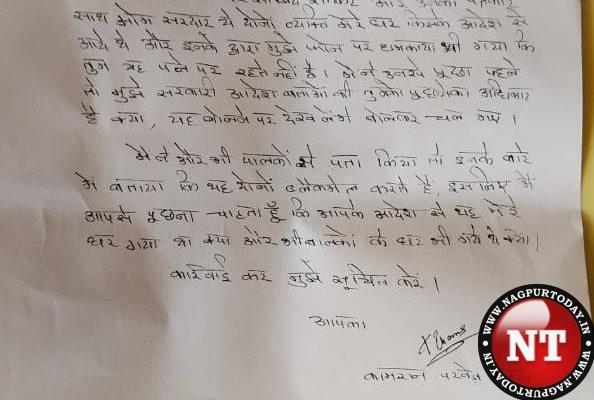 और उनका
साथ ओम सरदार ये दोनों व्यक्ति मेरे घर किसके आदेश से
आये थे और इनके द्वारा मुझे फोन पर धमकाया भी गया कि
तुम यह पते पर रहते नहीं है। मैंने उनसे पूछा पहले
तो मुझे सरकारी आदेश बताओ की तुमको पुछनेका अधिकार
है क्या, यह बोलने पर देख लेंगे बोलकर चले गए।
मैंने और भी पालकों से पता किया तो इनके बारे
में बताया कि यह दोनों ब्लैकमेल करते है, इस लिए मैं
आपसे पूछना चाहता हूँ कि आपके आदेश से यह मेरे
घर गया था क्या और भी पालकों के घर भी गये थे क्या।
कारवाई कर मुझे सूचित करें।
आपका
कामरान परवेज
WWW.NAGPURTODAY.IN
NT
WWW.NAGPURTODAY.IN